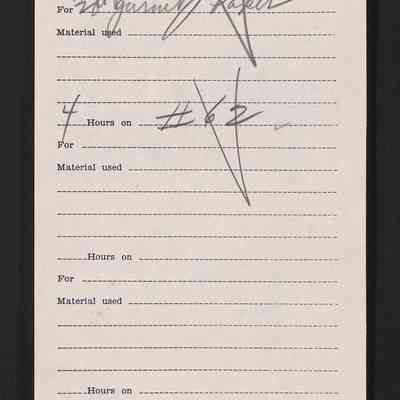 For 20 garnet Raker
Material used
4 Hours on #62
For
Material used
Hours on
For
Material used
Hours on